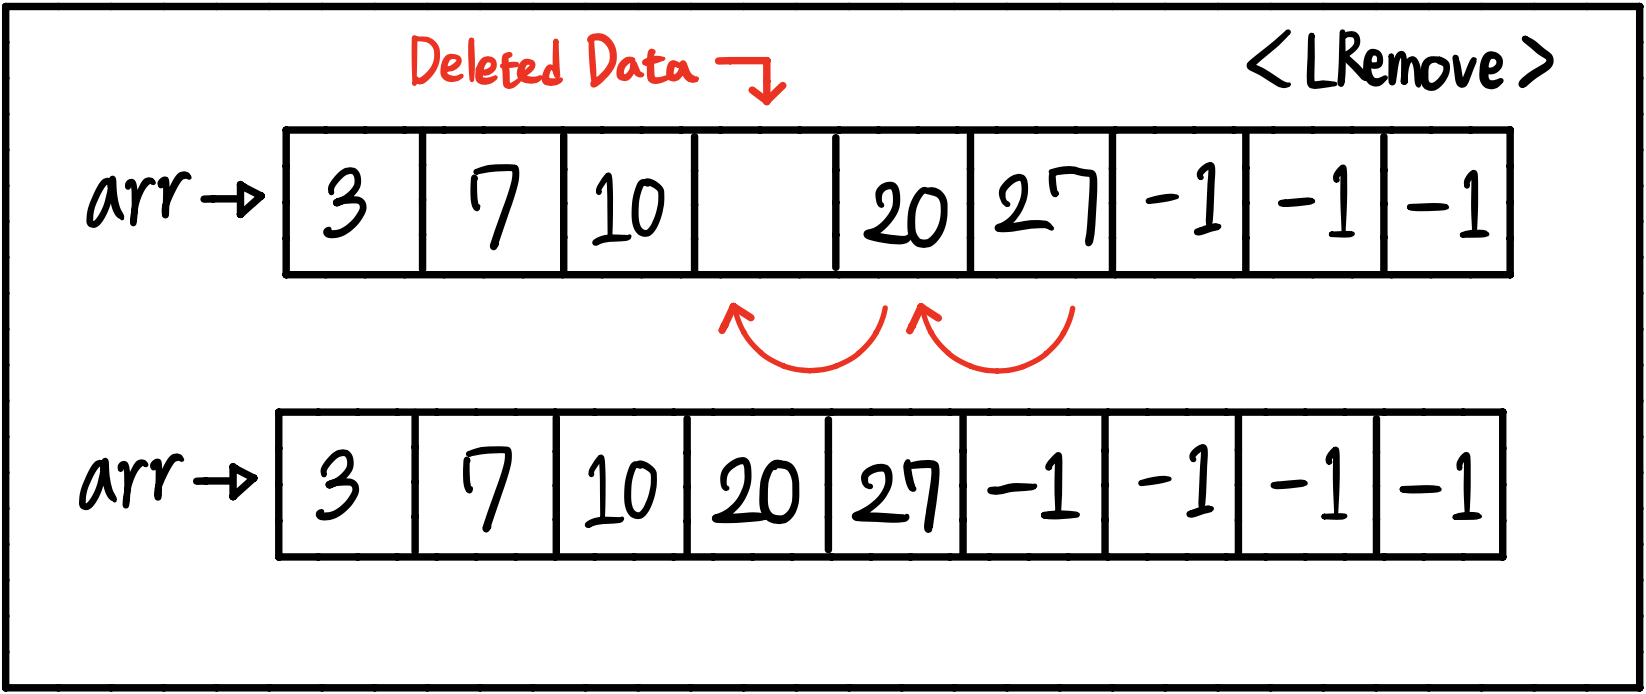 Deleted Data
<LRemove>
arr 3 7 10 20 27 -1 -1 -1
arr 3 7 10 20 27 -1 -1 -1 -1